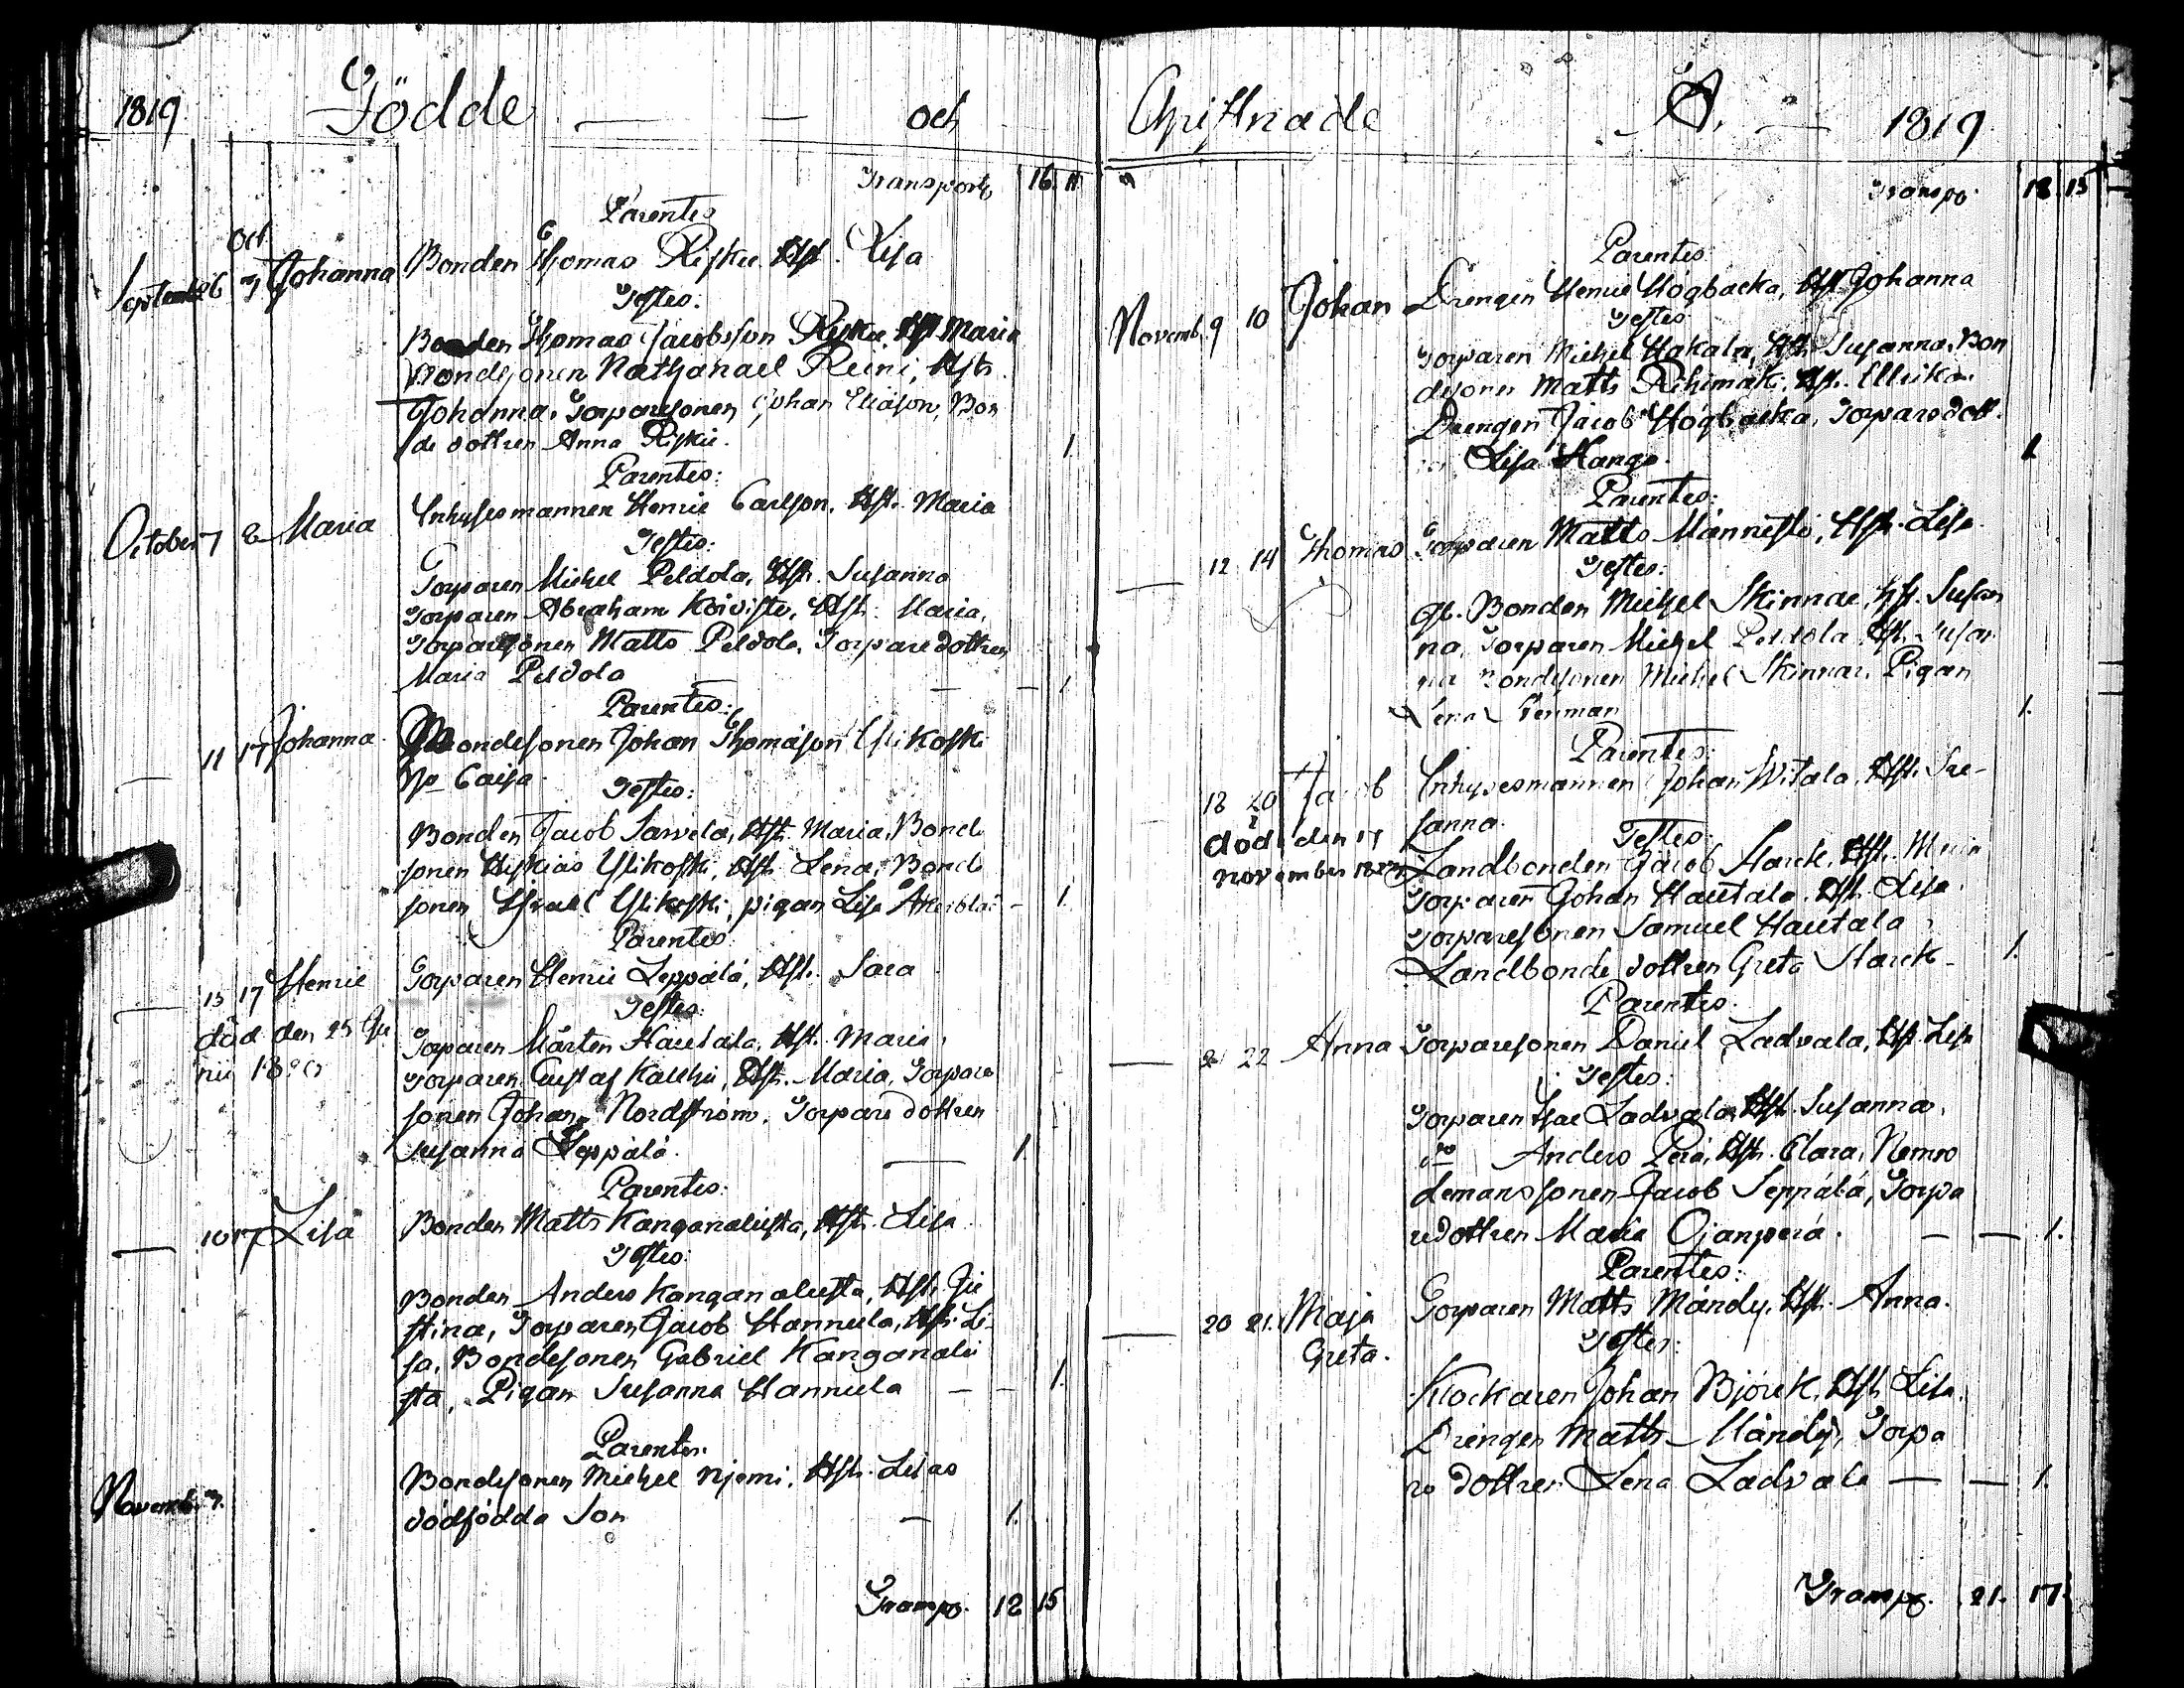 1819 Födde och
Transport 16. 11
Parentes
Oct.
September 26 3 Johanna Bonden Thomas Risku Hst. Lisa
Testes:
Bonden Thomas Jacobsson Risku, Hst. Maria
Bondesonen Nathanael Reini, Hst.
Johanna, Torparesonen Johan Eliason, Bon
de dottren Anna Risku. 1
Parentes:
October 7 8 Maria Inhysesmannen Henric Carlson, Hst. Maria
Testes:
Torparen Michel Peldola, Hst. Susanna
Torparen Abraham Koivisto, Hst. Maria,
Torparesonen Matts Peldola, Torparedottren
Maria Peldola 1
Parentes:
11 17 Johanna Bondesonen Johan Thomason Ylikoski
Caisa
Testes:
Bonden Jacob Sarvela, Hst. Maria, Bond
sonen Hiskias Ylikoski, Hst. Lena, Bond
sonen Israel Ylikoski, pigan Lisa 1.
Parentes
15 17 Henric Torparen Henric Leppälä, Hst. Sara
död den 25 Ju
nii
Testes:
Torparen Mårten Hautala, Hst. Maria,
Torparen Gustaf Kaukju, Hst. Maria, Torpare
sonen Johan Nordström, Torpare dottren
Susanna Leppälä. 1.
Parentes:
10 17 Lisa Bonden Matts Kanganalusta, Hst. Lisa
Testes:
Bonden Anders Kanganalusta, Hst. Ju
stina, Torparen Jacob Hannula, Hst. Li
sa, Bondesonen Gabriel Kanganalu
sta, Pigan Susanna Hannula 1.
Parentes:
Bondesonen Michel Njemi, Hst. Lisas
Novemb. 3. dödfödda Son 1.
Transp. 18 15
Christnade A. 1819
Transp. 18 15
Parentes
Novemb. 9 10 Johan Drengen Henric Högbacka, Hst. Johanna
Testes
Torparen Michel Hakala, Hst. Susanna, Bon
desonen Matts Rihimäki, Hst. Ullrika
Drengen Jacob Högbacka, Torparedott
Lisa Hango. 1
Parentes:
12 14 Thomas Torparen Matts Männistö, Hst. Lisa
Testes:
Bonden Michel Skinnar, Hst. Susan
na, Torparen Michel Peldola, Hst. Susan
na Bondesonen Michel Skinnar, Pigan
Lena 1.
Parentes:
18 20 Jacob Inhysesmannen Johan Witala, Hst. Su-
sanna.
död den 17
november
Testes:
Landbonden Jacob Harck, Hst. Maria
Torparen Johan Hautala, Hst. Lisa
Torparesonen Samuel Hautala
Landbonde dottren Greta Harck 1.
Parentes
21 22 Anna Torparesonen Daniel Ladvala, Hst. Lisa
Testes:
Torparen Isac Ladvala, Hst. Susanna,
do Anders Perä, Hst. Clara, Nemn
demanssonen Jacob Seppälä, Torpa
redottren Maria Ojanperä. 1.
Parentes:
20 21. Maja Torparen Matts Mändy, Hst. Anna.
Greta.
Testes:
Klockaren Johan Björck, Hst. Lisa.
Drengen Matts Mändy, Torpa
re dottren Lena Ladvala 1.
Transp. 21. 17.